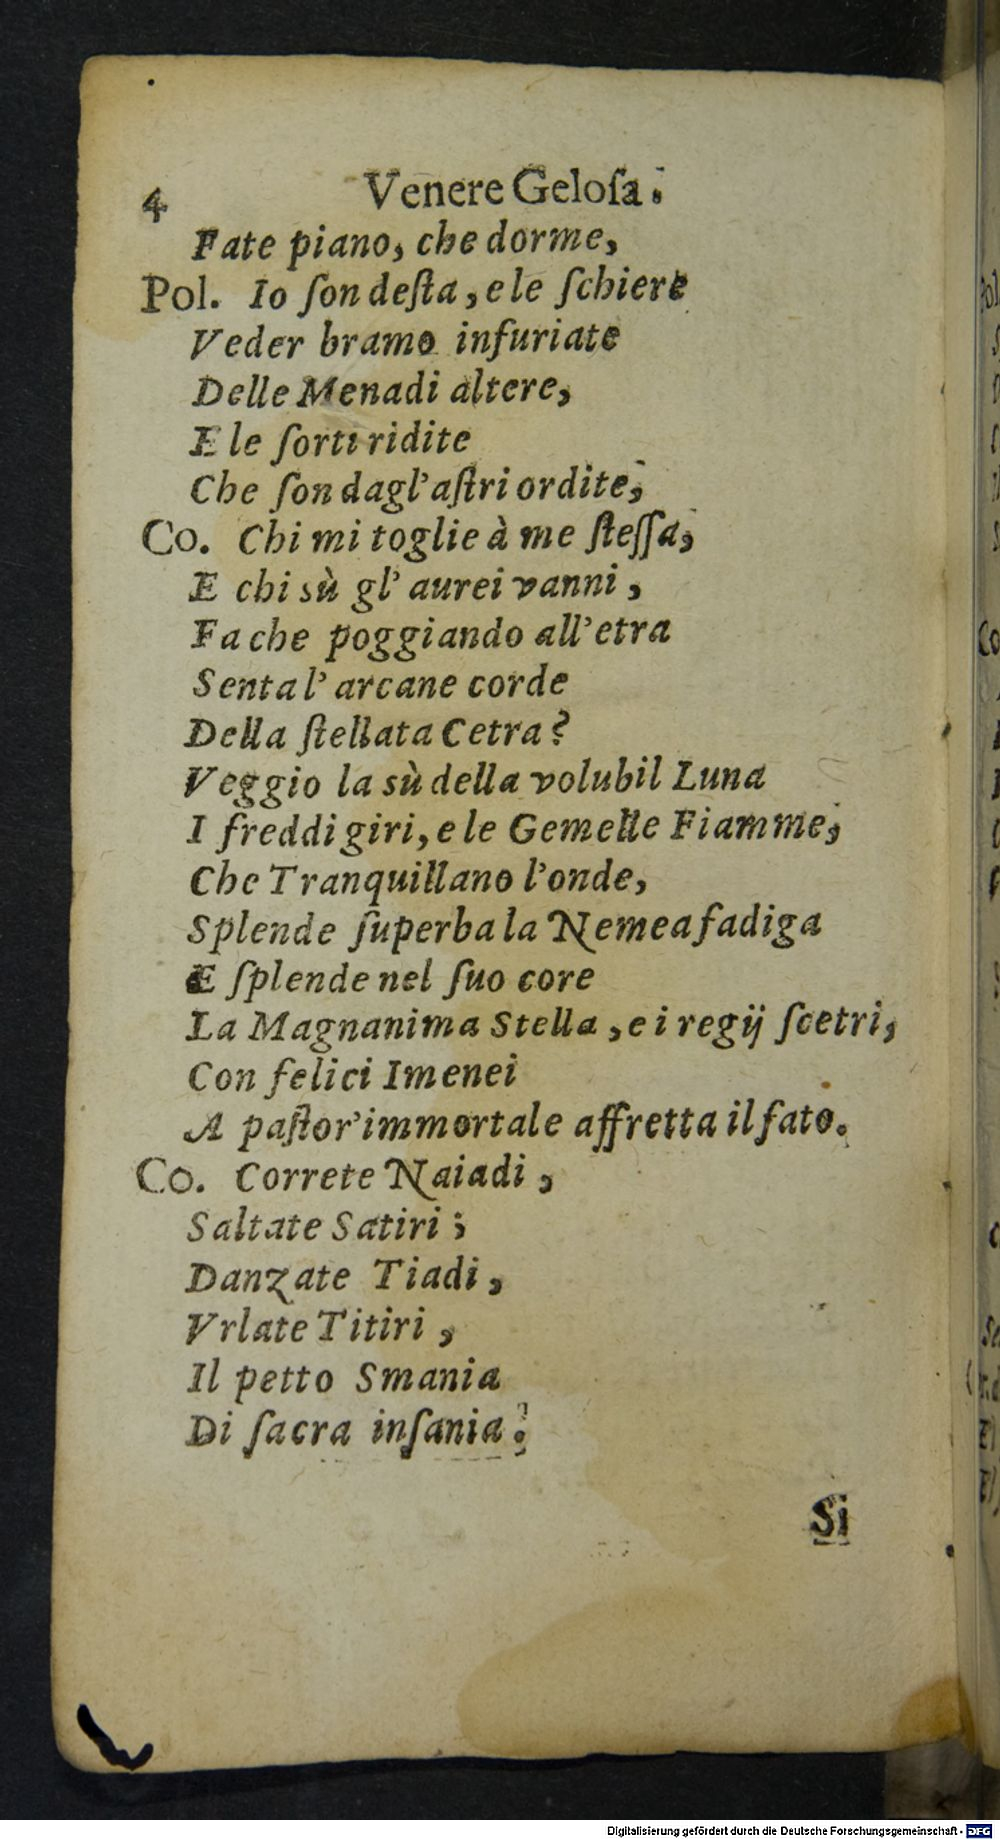 4 Venere Geloſa.
Fate piano, che dorme,
Pol. Io ſon deſta, e le ſchiere
Veder bramo infuriate
Delle Menadi altere,
E le ſorti ridite
Che ſon dagl'aſtri ordite;
Co. Chi mi toglie à me ſteſſa,
E chi sù gl' aurei vanni,
Fa che poggiando all'etra
Senta l' arcane corde
Della ſtellata Cetra?
Veggio la sù della volubil Luna
I freddi giri, e le Gemelle Fiamme;
Che Tranquillano l'onde,
Splende ſuperba la Nemea fadiga
E ſplende nel ſuo core
La Magnanima Stella, e i regij ſcetri,
Con felici Imenei
A paſtor'immortale affretta il fato.
Co. Correte Naiadi,
Saltate Satiri;
Danzate Tiadi,
Vrlate Titiri,
Il petto Smania
Di ſacra inſania.
Si
Digitalisierung gefördert durch die Deutsche Forschungsgemeinschaft - DFG